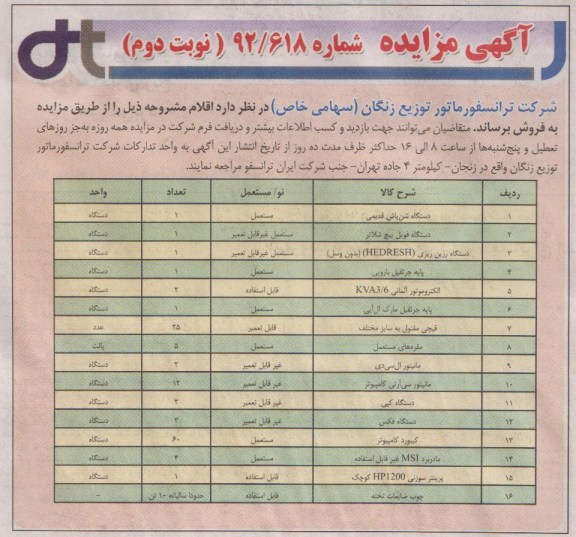 آگهی مزایده شماره ۹۲/۶۱۸ (نوبت دوم)
شرکت ترانسفورماتور توزیع زنگان (سهامی خاص) در نظر دارد اقلام مشروحه ذیل را از طریق مزایده
به فروش برساند، متقاضیان می‌توانند جهت بازدید و کسب اطلاعات بیشتر و دریافت فرم شرکت در مزایده همه روزه به‌جز روزهای
تعطیل و پنج‌شنبه‌ها از ساعت ۸ الی ۱۶ حداکثر ظرف مدت ده روز از تاریخ انتشار این آگهی به واحد تدارکات شرکت ترانسفورماتور
توزیع زنگان واقع در زنجان- کیلومتر ۴ جاده تهران- جنب شرکت ایران ترانسفو مراجعه نمایند.
ردیف شرح کالا نو/ مستعمل تعداد واحد
۱ دستگاه شن‌پاش قدیمی مستعمل ۱ دستگاه
۲ دستگاه فویل پیچ شلاتر مستعمل غیرقابل تعمیر ۱ دستگاه
۳ دستگاه رزین ریزی (HEDRESH) (بدون وسل) مستعمل غیرقابل تعمیر ۱ دستگاه
۴ پایه جرثقیل بازویی مستعمل ۱ دستگاه
۵ الکتروموتور آلمانی KVA3/6 قابل استفاده ۲ دستگاه
۶ پایه جرثقیل مارک ال‌آبی مستعمل ۱ دستگاه
۷ قیچی مفتول به سایز مختلف قابل تعمیر ۲۵ عدد
۸ مقره‌های مستعمل مستعمل ۵ پالت
۹ مانیتور ال‌سی‌دی غیر قابل تعمیر ۲ دستگاه
۱۰ مانیتور سی‌آرتی کامپیوتر غیر قابل تعمیر ۱۲ دستگاه
۱۱ دستگاه کپی غیر قابل تعمیر ۲ دستگاه
۱۲ دستگاه فکس غیر قابل تعمیر ۳ دستگاه
۱۳ کیبورد کامپیوتر مستعمل ۶۰ دستگاه
۱۴ مادربرد MSI غیر قابل استفاده مستعمل ۴ دستگاه
۱۵ پرینتر سوزنی HP1200 کوچک قابل استفاده ۱ دستگاه
۱۶ چوب ضایعات تخته قابل استفاده حدودا سالیانه ۱۰ تن -